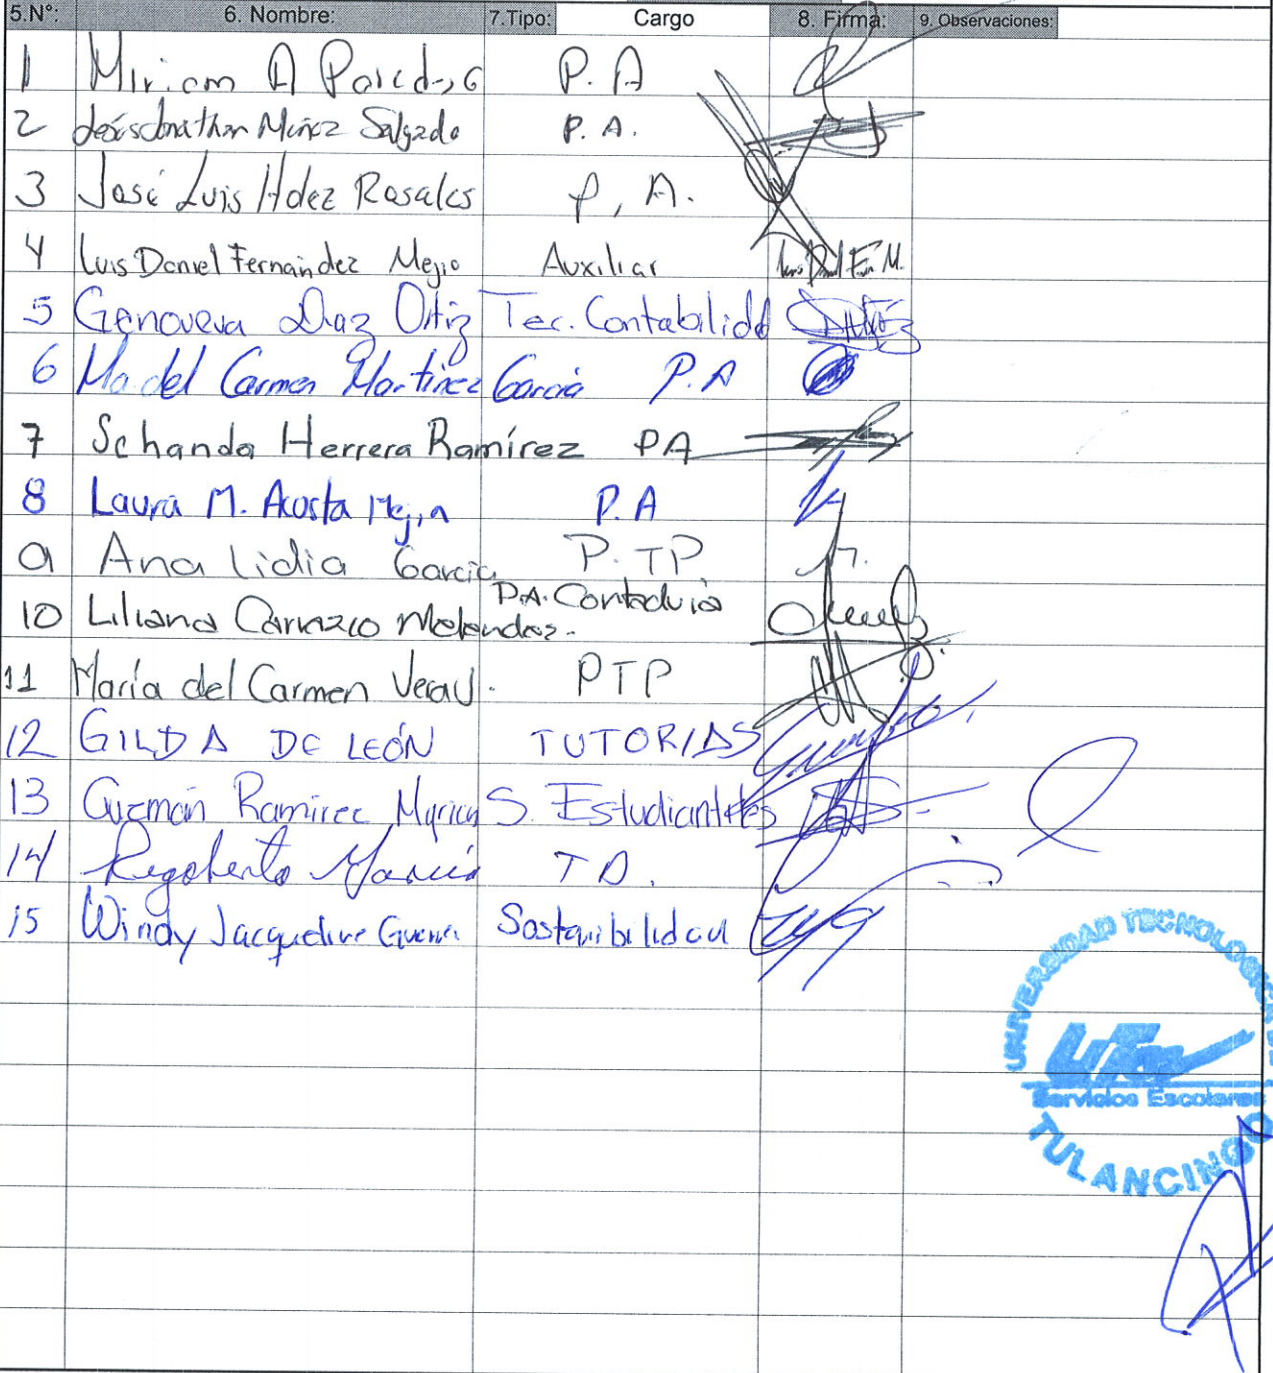 5.N°: 6. Nombre: 7.Tipo: Cargo 8. Firma: 9. Observaciones:
1 Miriam A Paredes G P. A
2 Jesús Jonathan Muñoz Salgado P. A.
3 José Luis Hdez Rosales P, A.
4 Luis Daniel Fernández Mejio Auxiliar Luis Dnl Fer. M.
5 Genoveva Diaz Ortiz Tec. Contabilidd
6 Ma. del Carmen Martínez García P.A
7 Schanda Herrera Ramírez PA
8 Laura M. Acosta Mejia P.A
9 Ana Lidia Garcia P. TP
10 Liliana Carrazco Melendez. P.A. Contaduria
11 María del Carmen Vera V. PTP
12 GILDA DE LEÓN TUTORIAS
13 Guzmán Ramirez Myriam S. Estudiantiles
14 Rigoberto García TD.
15 Windy Jacqueline Sostenibilidad
UNIVERSIDAD TECNOLOGICA
UTec
Servicios Escolares
TULANCINGO